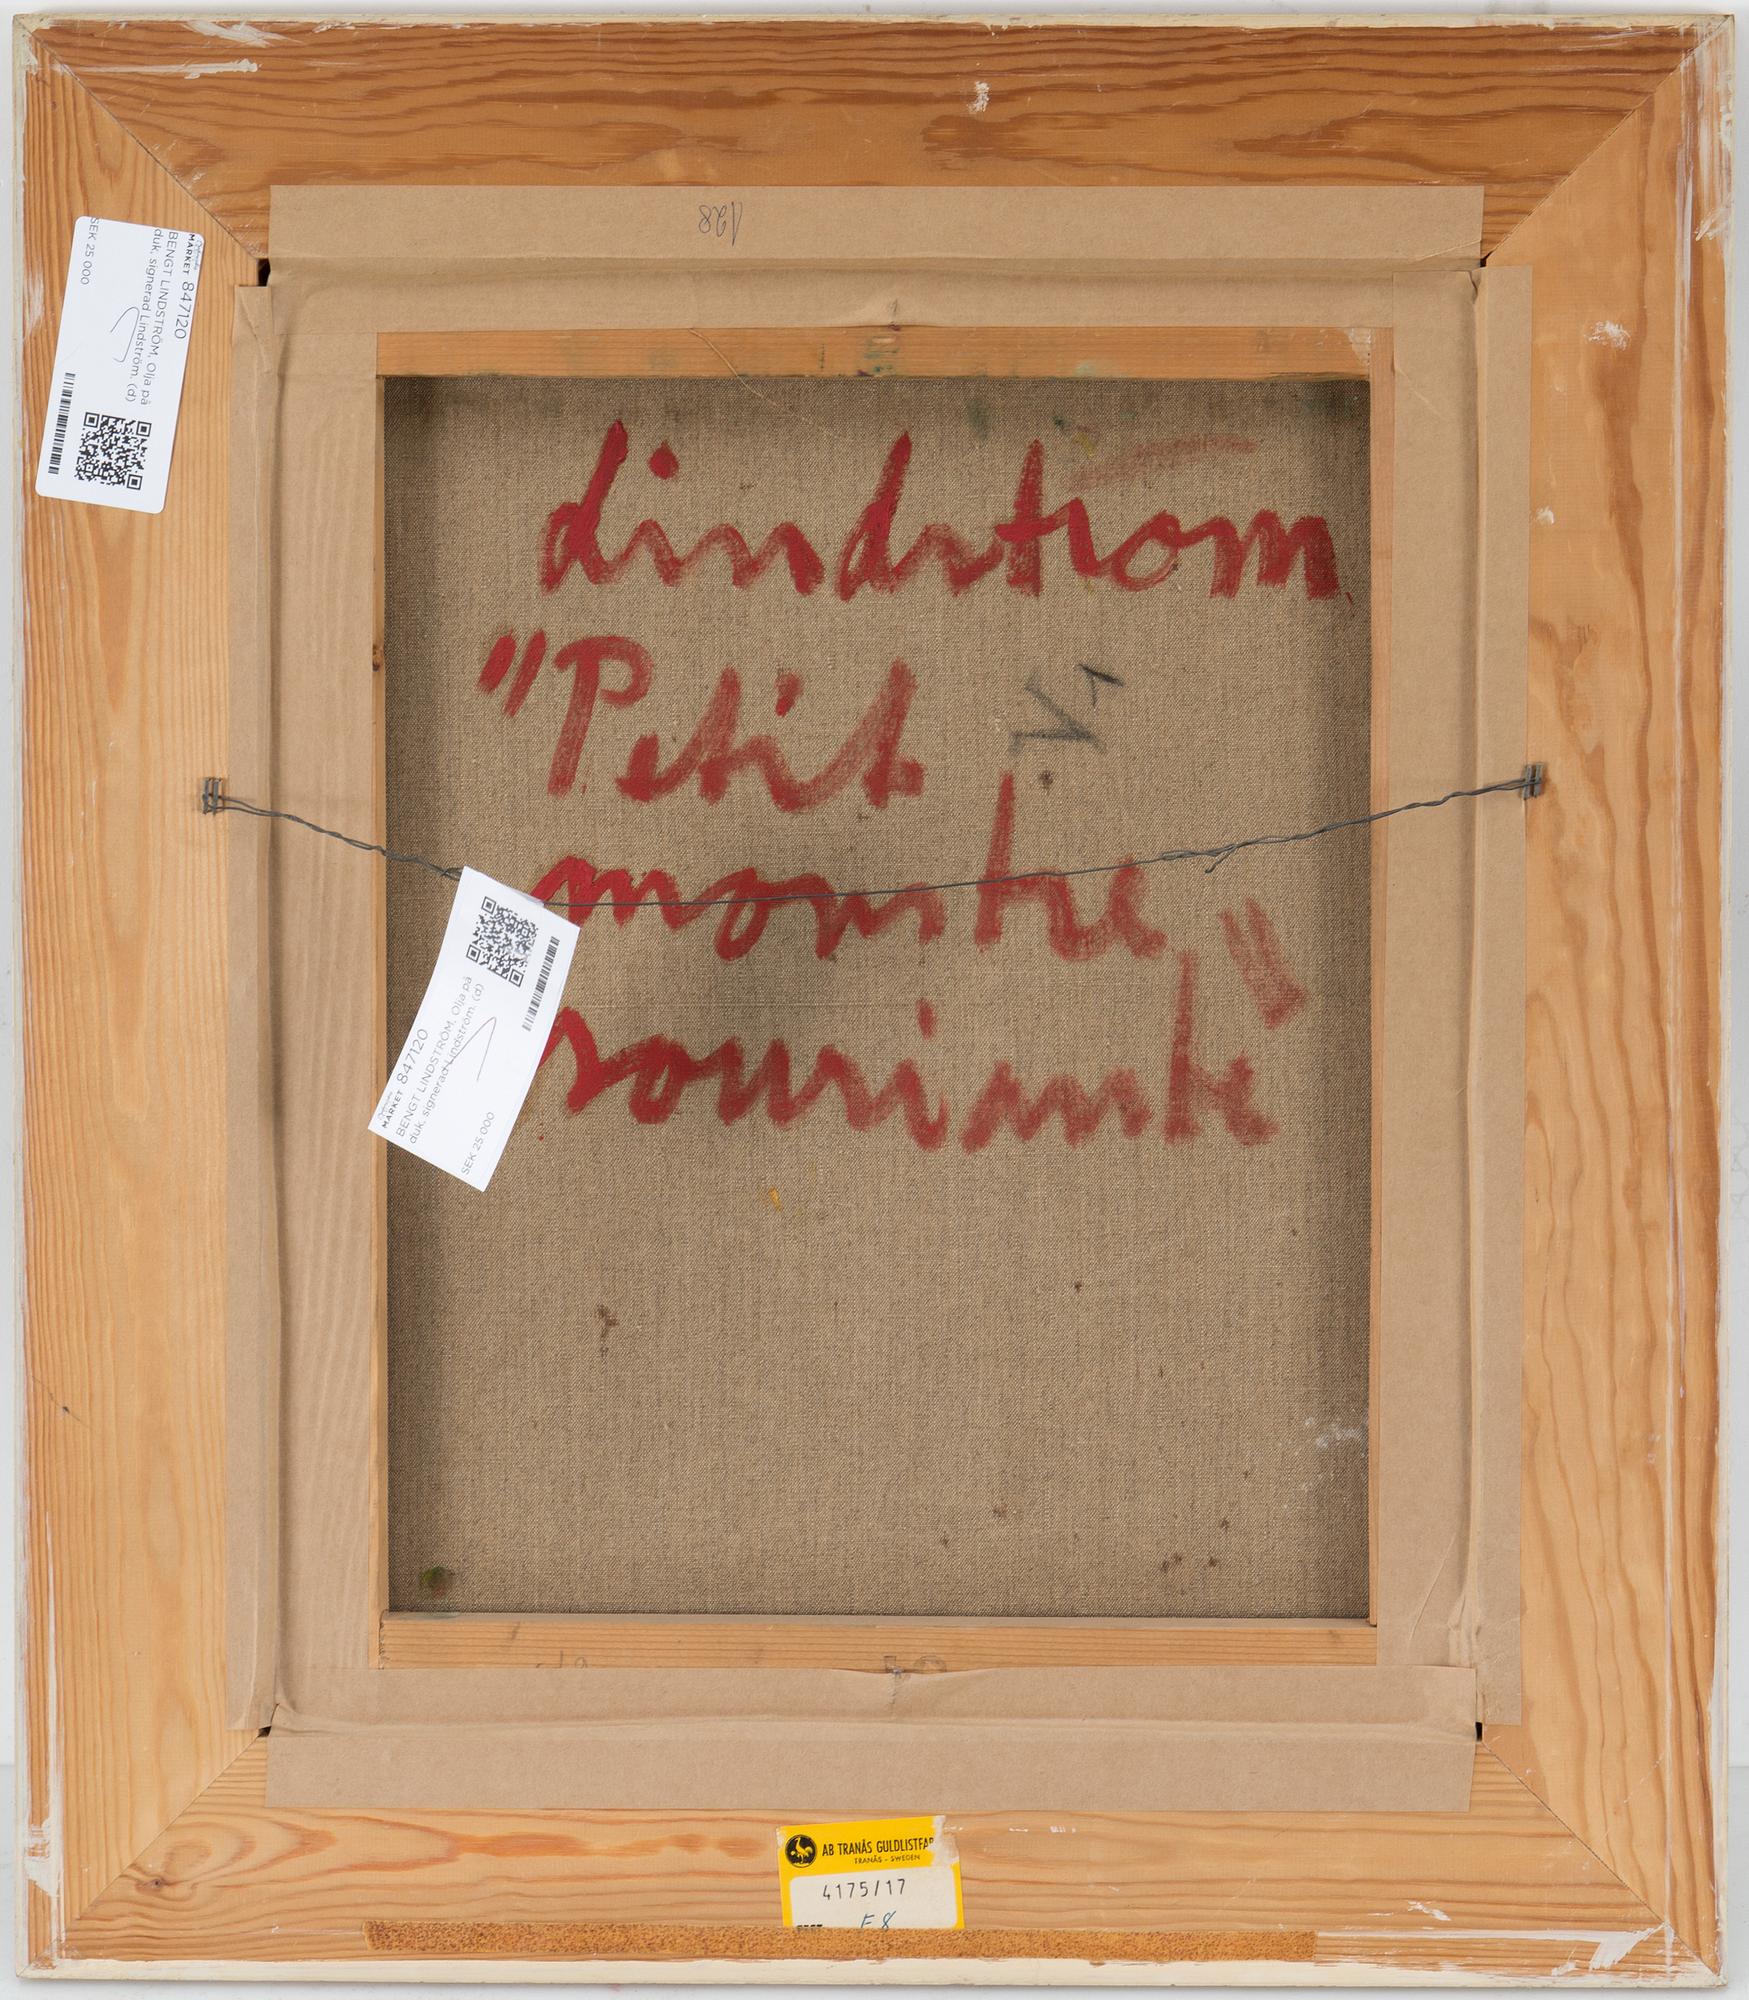 128
MARKET 847120
BENGT LINDSTRÖM, Olja på
duk, signerad Lindström. (d)
SEK 25 000
Lindström
"Petit
V1
monstre
souriante"
MARKET 847120
BENGT LINDSTRÖM, Olja på
duk, signerad Lindström. (d)
SEK 25 000
AB TRANÅS GULDLISTFAB
TRANÅS - SWEDEN
4175/17
F8